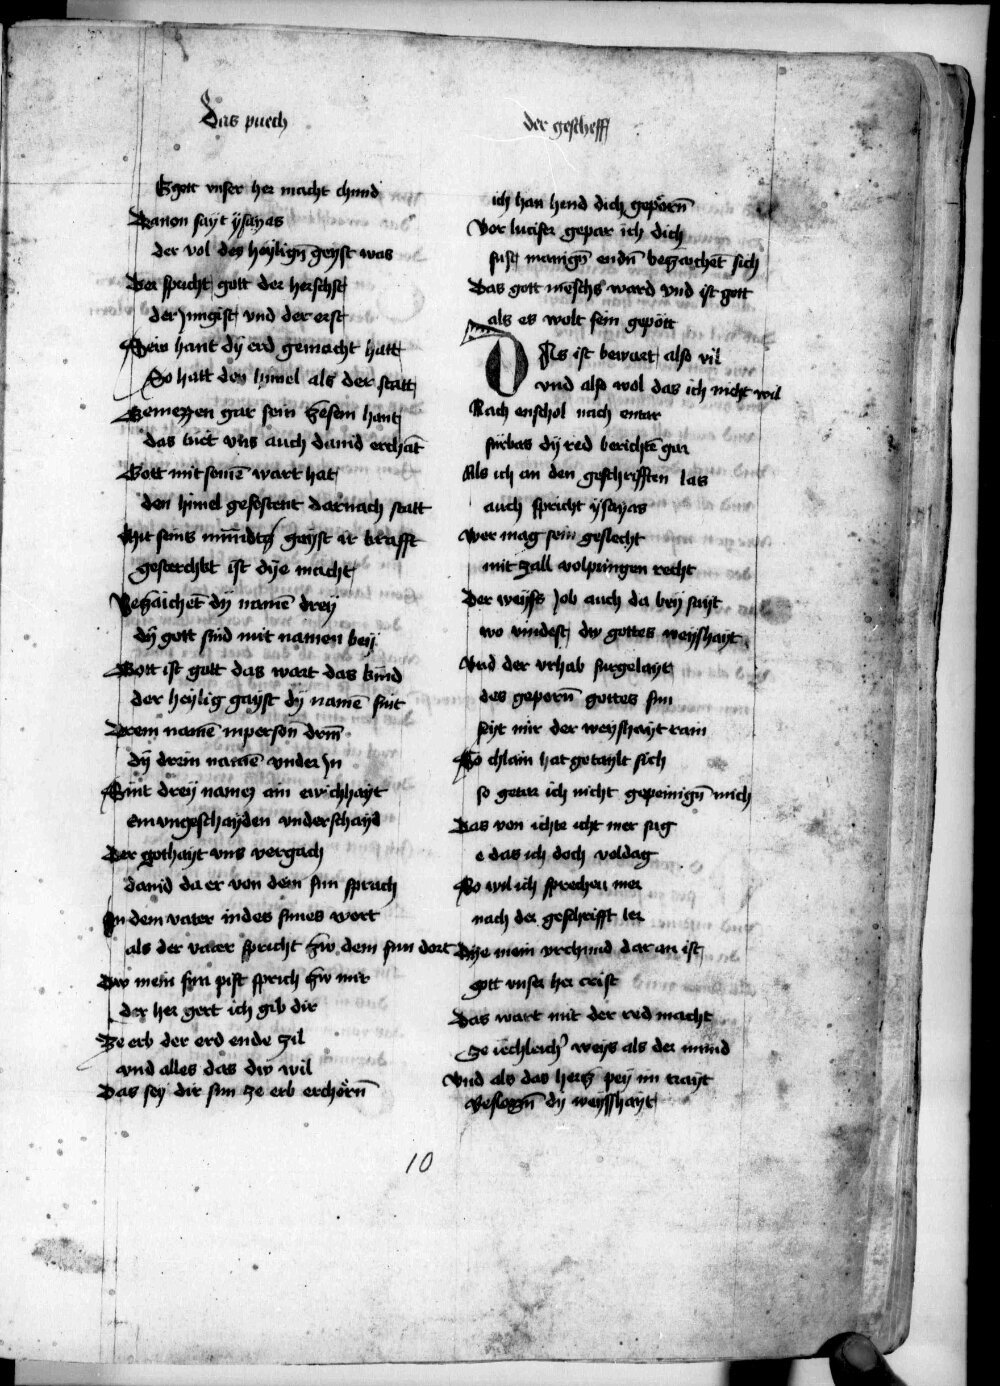 Das puech
der gescheff
Got vnser her macht chund
Dauon sayt ysayas
der vol des heylign̄ geyst was
Der spricht gott der herschst
der Jungist vnd der erst
Sein hant dy erd gemacht hatt
So hatt den himel als der statt
Gemezzen gar sein zesem hant
das tuet vns auch dauid erchāt
Gott mit seinē wart hat
den himel gefestent darnach statt
Mit seins mundtz gayst ir krafft
gesterchkt ist dye macht
Bezaichēt dy namē drey
dy gott sind mit namen bey
Gott ist gott das wart das kind
der heylig gayst dy namē sint
Drein namē inperson̄ drin̄
dy drein namē vnder In
Sint drey namen ain ewichhayt
ein vngeschayden vnderschayd
Der gothayt vns vergach
dauid da er von dem sun sprach
In dem vater in des sunes wort
als der vater spricht zw dem sun dort
Dw mein sun pist sprich zw mir
der her gert ich gib dir
Ze erb der erd ende zil
vnd alles das dw wil
Das sey dir sun ze erb erchorn̄
ich han hend dich geporn̄
Vor lucifer gepar ich dich
sust manign̄ endn̄ bezaichēt sich
Das gott mēschs ward vnd ist gott
als es wolt sein gepott
DAs ist bewart also vil
vnd also wol das ich nicht wil
Nach enschol nach entar
furbas dy red berichtē gar
Als ich an den geschrifften las
auch spricht ysayas
Wer mag sein geslecht
mit zall volpringen recht
Der weyss Job auch da bey sayt
wo vindest dw gottes weyshayt
Vnd der vrhab furgelayt
des geporn̄ gottes sun
seyt mir der weyshayt rain
So chlain hat getaylt sich
so getar ich nicht gepeinign̄ mich
Das von ichte icht mer sag
e das ich doch voldag
So wil ich sprechen mer
nach der geschrifft ler
Dye mein vrchund dar an ist
gott vnser her crist
Das wart mit der red macht
ze weys als der mund
Vnd als das hertz pey im trayt
Beslogn̄ dy weysshayt
10